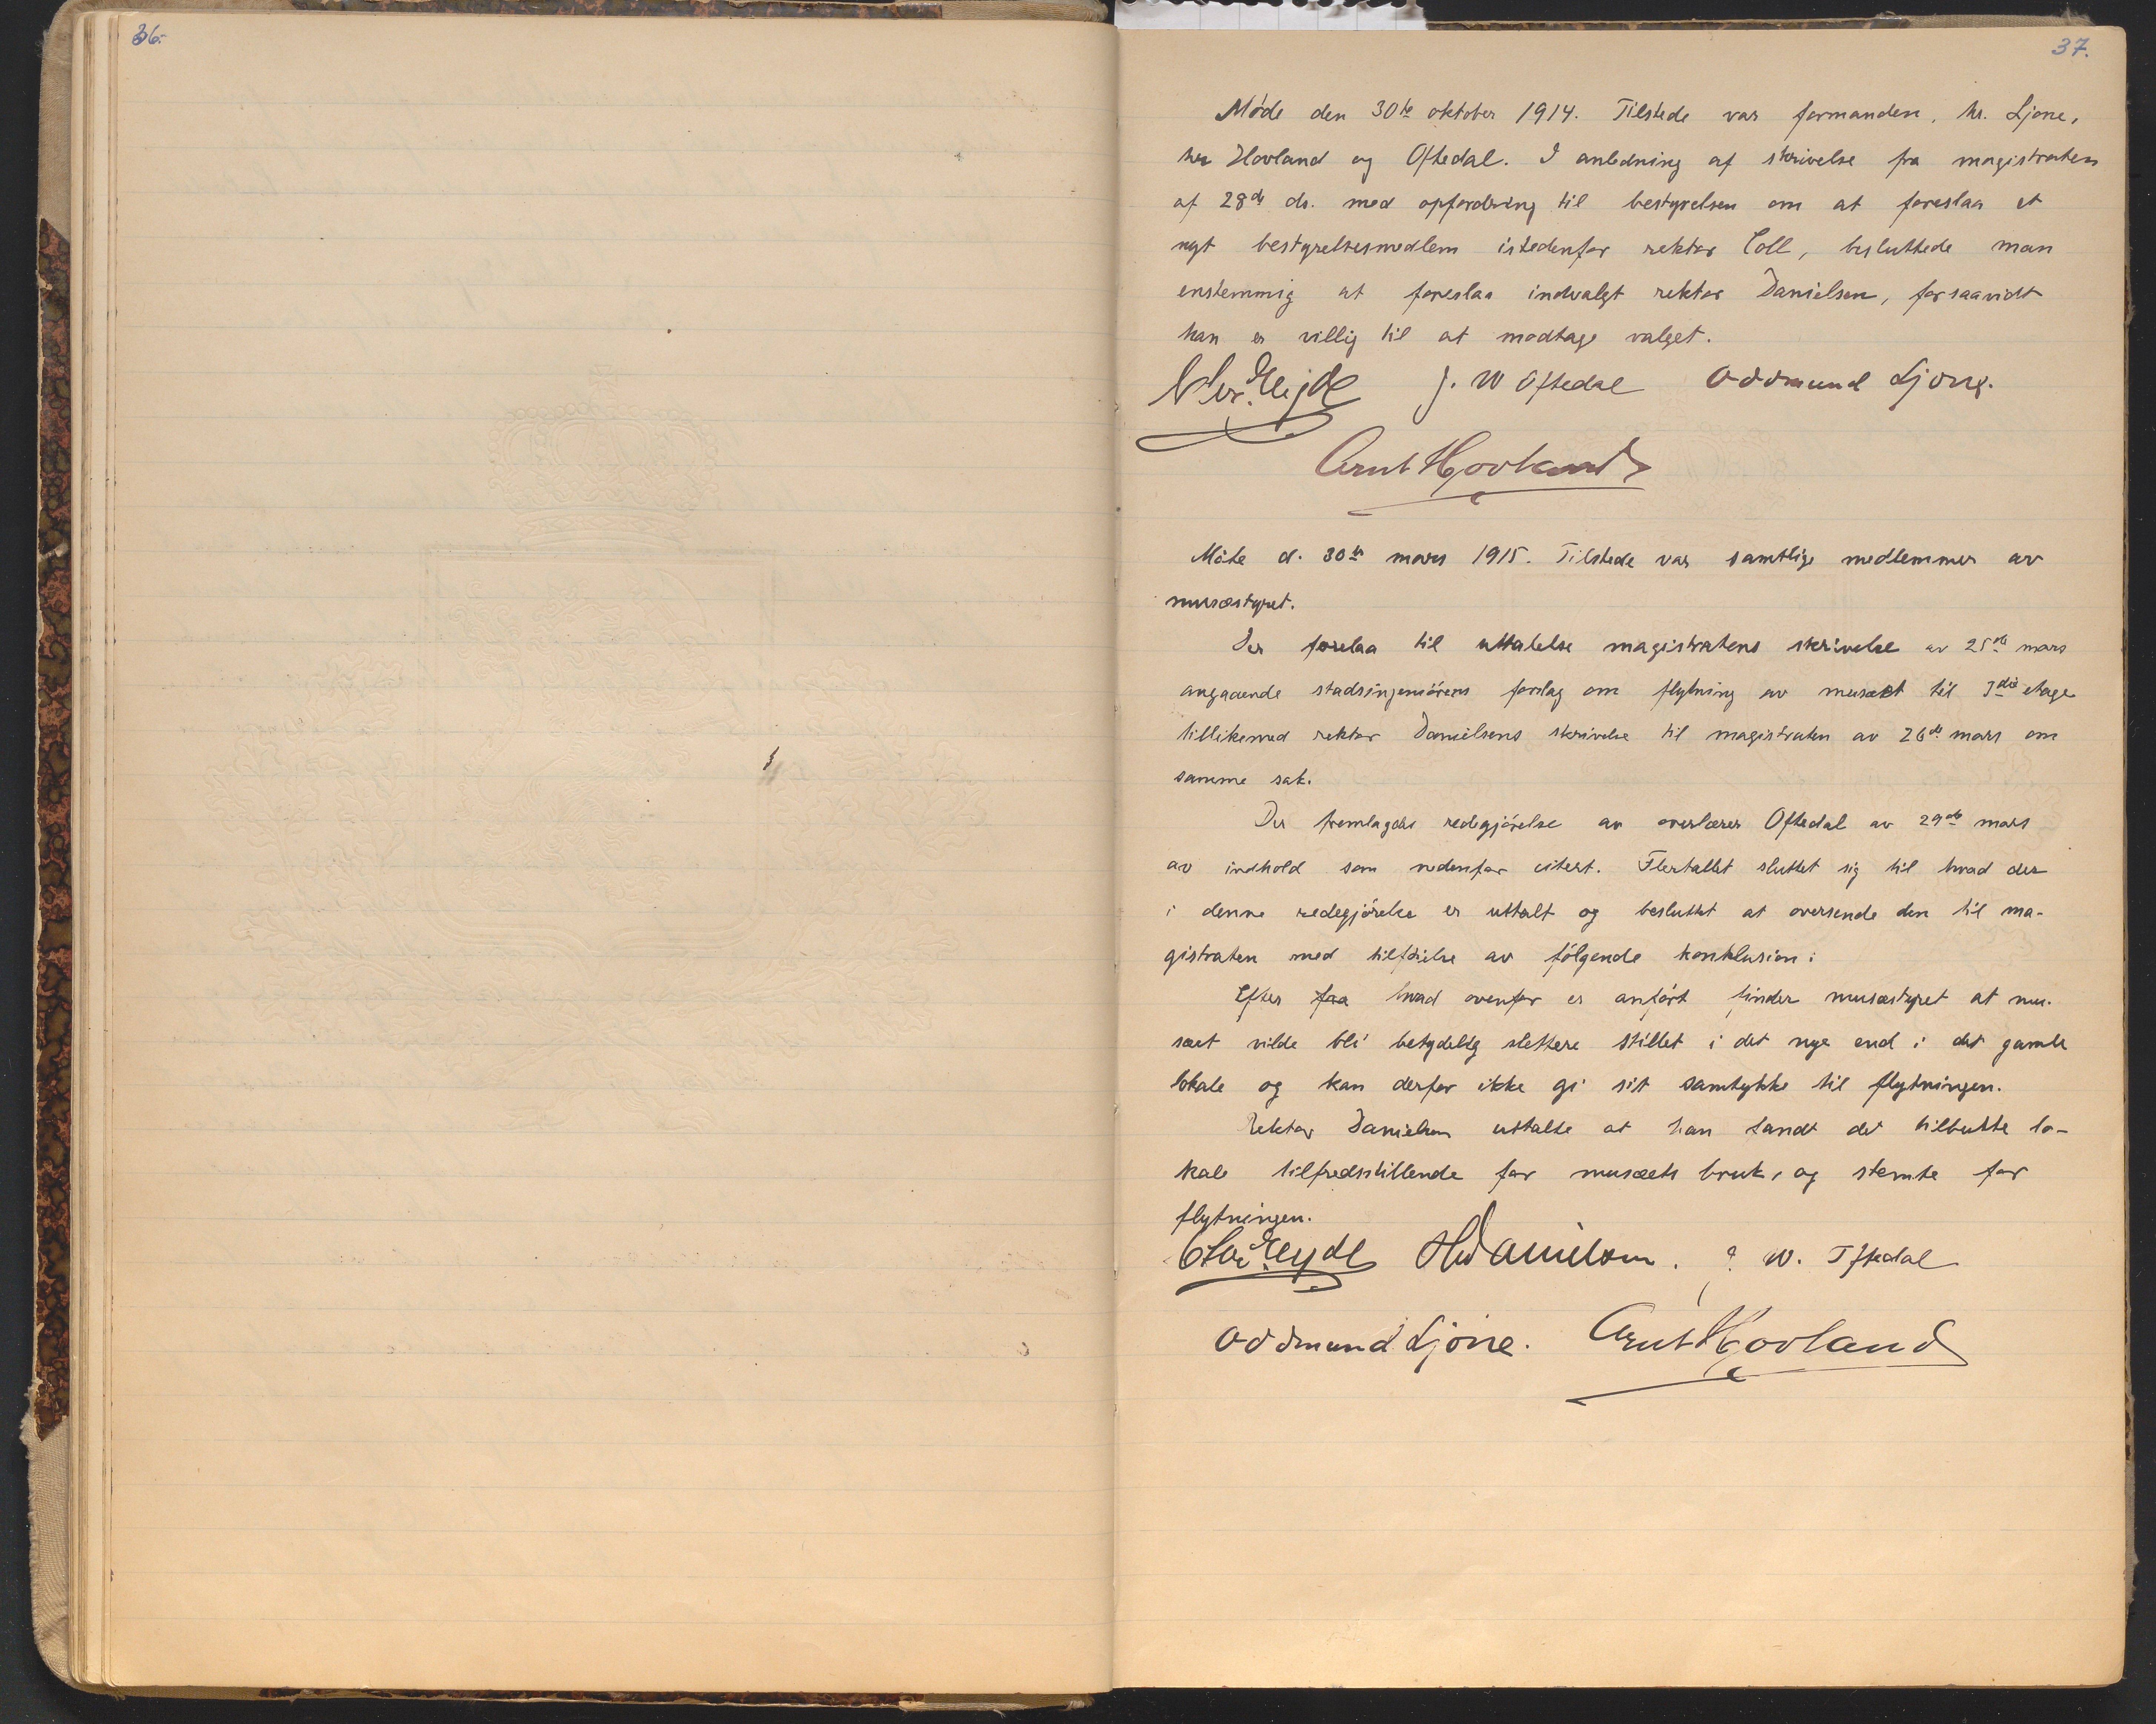 36.
37.
Møde den 30te oktober 1914. Tilstede var formanden, hr. Ljone,
hr. Hovland og Oftedal. I anledning af skrivelse fra magistraten
af 28de ds. med opfordring til bestyrelsen om at foreslaa et
nyt bestyrelsesmedlem istedenfor rektor Coll, besluttede man
enstemmig at foreslaa indvalgt rektor Danielsen, forsaavidt
han er villig til at modtage valget.
J. W Oftedal Oddmund Ljone.
Arnt Hovland
Møte d. 30te mars 1915. Tilstede var samtlige medlemmer av
musæstyret.
Der forelaa til uttalelse magistratens skrivelse av 25de mars
angaaende stadsingeniørens forslag om flytning av musæet til 3die etage
tillikemed rektor Danielsens skrivelse til magistraten av 26de mars om
samme sak.
Der fremlagdes redegjørelse av overlærer Oftedal av 29de mars
av indhold som nedenfor citert. Flertallet sluttet sig til hvad der
i denne redegjørelse er uttalt og besluttet at oversende den til ma-
gistraten med tilføielse av følgende konklusion:
Efter hvad ovenfor er anført finder musæstyret at mu-
sæet vilde bli betydelig slettere stillet i det nye end i det gamle
lokale og kan derfor ikke gi sit samtykke til flytningen.
Rektor Danielsen uttalte at han fandt det tilbudte lo-
kale tilfredsstillende for musæets bruk, og stemte for
flytningen.
HDanielsen. J. W. Oftedal
Oddmund Ljone. Arnt Hovland